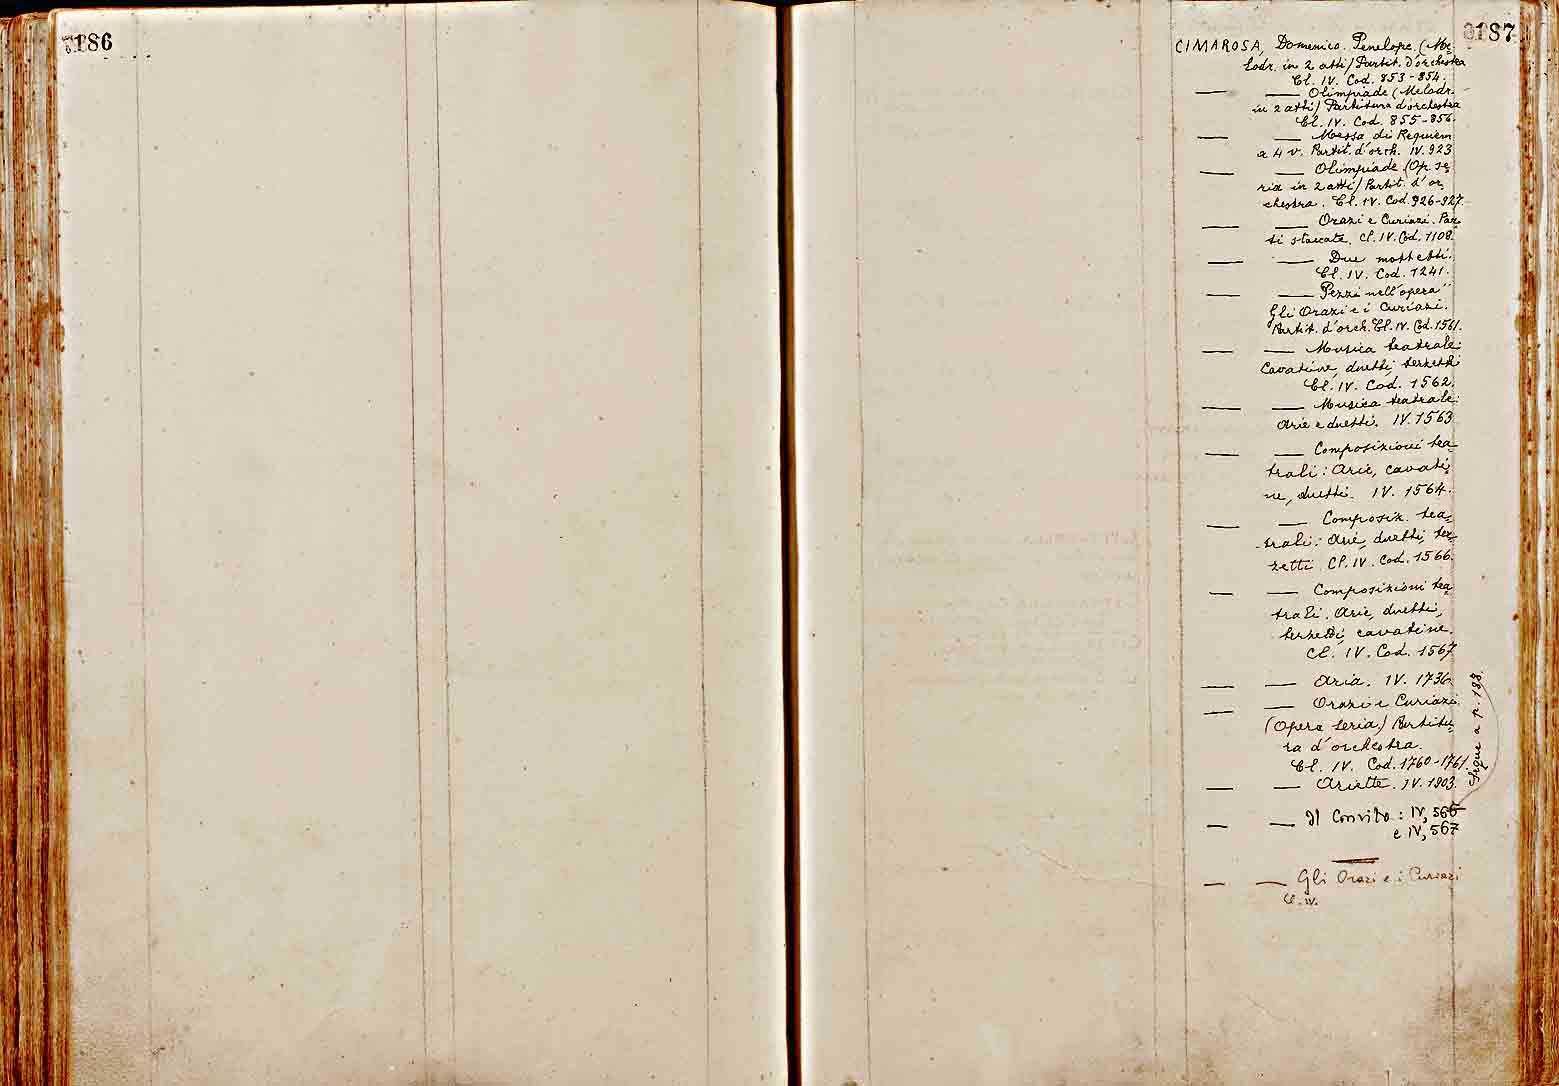 186
187
CIMAROSA, Domenico. Penelope. (Me=
lodr. in 2 atti) Partit. d'orchestra
Cl. IV. Cod. 853-854.
— — Olimpiade (Melodr.
in 2 atti) Partitura d'orchestra
Cl. IV. Cod. 855-856.
— — Messa di Requiem
a 4 v. Partit. d'orch. IV. 923
— — Olimpiade. (Op. se=
ria in 2 atti) Partit. d'or=
chestra. Cl. IV. Cod. 926-927.
— — Orazi e Curiazi. Par=
ti staccate. Cl. IV. Cod. 1108.
— — Due mottetti.
Cl. IV. Cod. 1241.
— — Pezzi nell'opera "
Gli Orazi e i Curiazi.
Partit. d'orch. Cl. IV. Cod. 1561.
— — Musica teatrale:
Cavatine, duetti, terzetti
Cl. IV. Cod. 1562.
— — Musica teatrale:
Arie e duetti. IV. 1563
— — Composizioni tea=
trali: Arie, cavati=
ne, duetti. IV. 1564.
— — Composiz. tea=
trali: Arie, duetti, ter=
zetti Cl. IV. Cod. 1566.
— — Composizioni tea=
trali. Arie, duetti,
terzetti, cavatine.
Cl. IV. Cod. 1567
— — Aria. IV. 1736.
— — Orazi e Curiazi.
(Opera seria) Partitu=
ra d'orchestra.
Cl. IV. Cod. 1760-1761.
— — Ariette. IV. 1803.
— — Il Convito: IV, 566
e IV, 567
— — Gli Orazi e i Curiazi
Cl. IV.
Segue a p. 188.